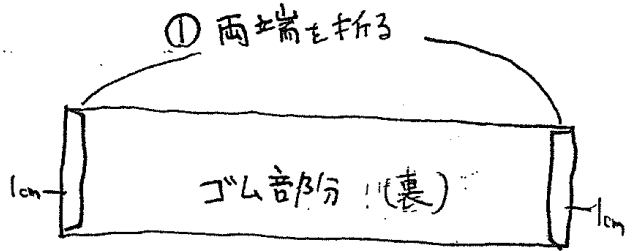 ① 両端を折る
1cm
ゴム部分 (裏)
1cm